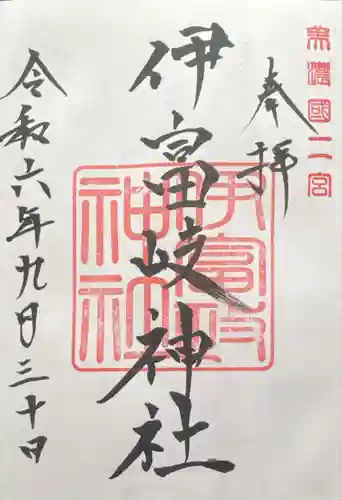 美濃國二宮
奉拝
伊富岐神社
伊富岐神社
令和六年九日三十日